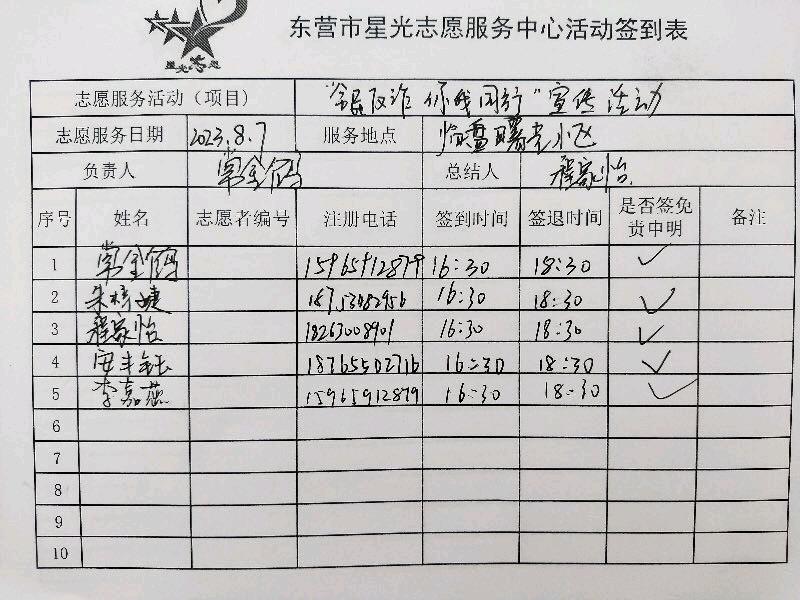 星光志愿
东营市星光志愿服务中心活动签到表
志愿服务活动（项目） "全民反诈 你我同行"宣传活动
志愿服务日期 2023.8.7 服务地点 曙光小区
负责人 常金鸽 总结人 程家怡
序号 姓名 志愿者编号 注册电话 签到时间 签退时间 是否签免责申明 备注
1 常金鸽 15965912879 16:30 18:30 ✓
2 朱梓婕 16:30 18:30 ✓
3 程家怡 18263008901 16:30 18:30 ✓
4 18765502716 16:30 18:30 ✓
5 李嘉燕 15965912879 16:30 18:30 ✓
6
7
8
9
10